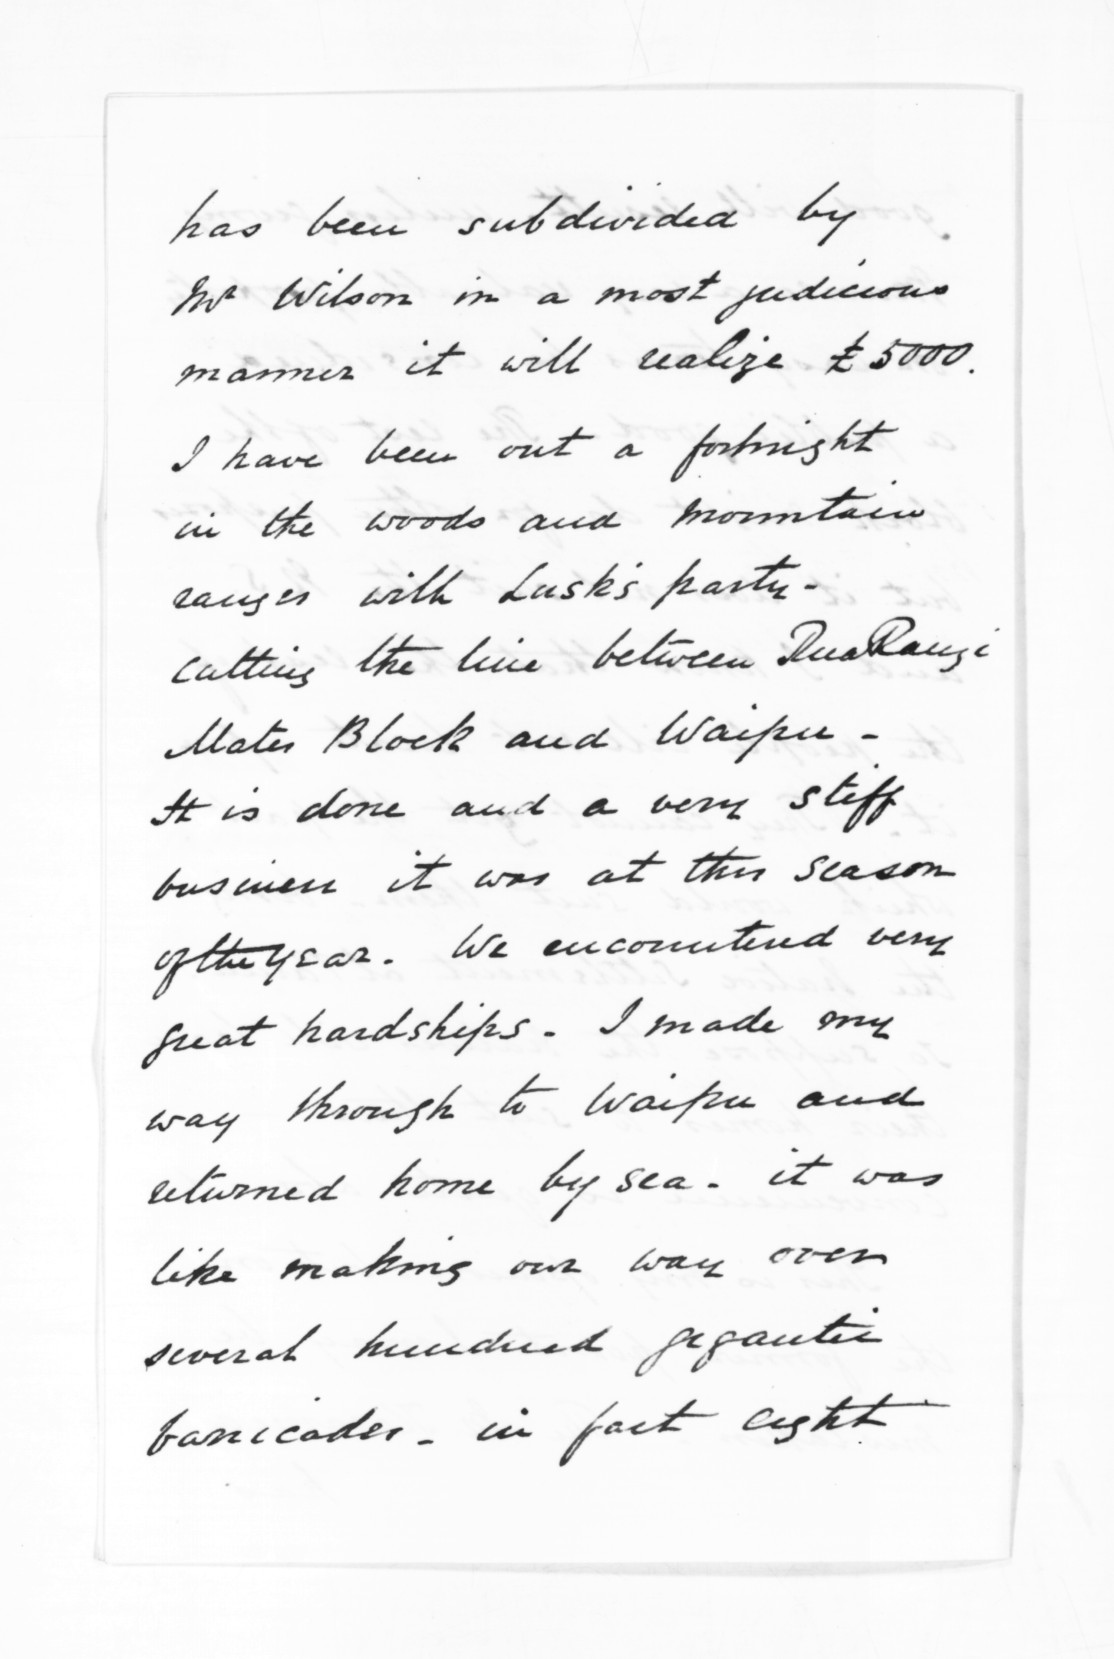 has been subdivided by
Mr Wilson in a most judicious
manner it will realize £5000.
I have been out a fortnight
in the woods and mountain
ranges with Lusk's party -
cutting the line between Rua Rangi
Mates Block and Waipu -
It is done and a very stiff
business it was at this season
of the year. We encountered very
great hardships - I made my
way through to Waipu and
returned home by sea - it was
like making our way over
several hundred gigantic
barricades - in fact eight